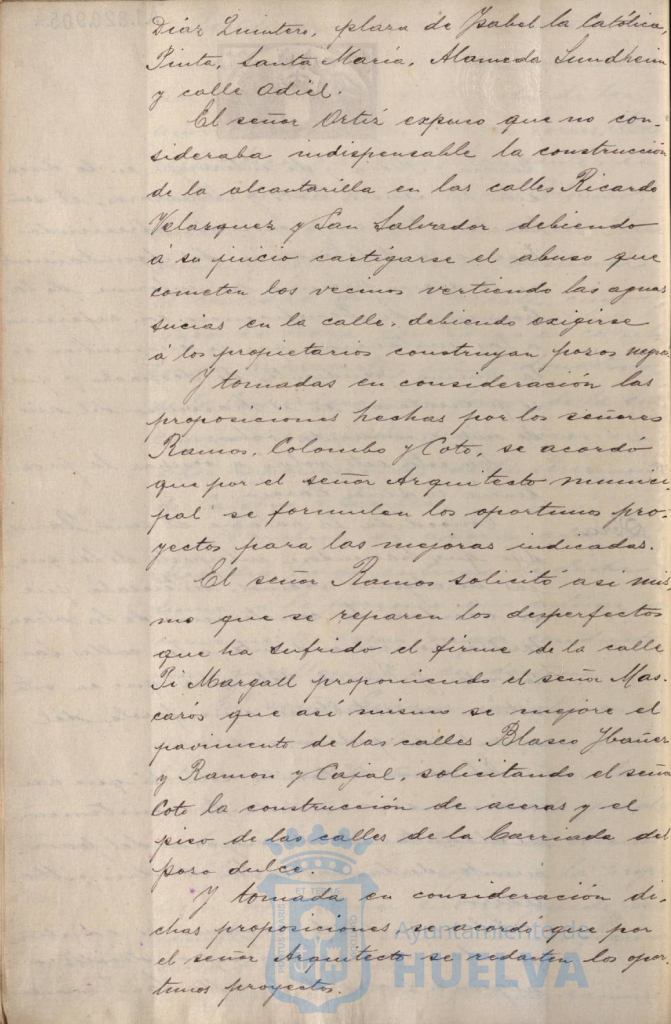 Díaz Quintero, plaza de Ysabel la Católica,
Pinta, Santa María, Alameda Sundheim
y calle Odiel.
El señor Ortiz expuso que no con-
sideraba indispensable la construcción
de la alcantarilla en las calles Ricardo
Velazquez y San Salvador debiendo
á su juicio castigarse el abuso que
cometen los vecinos vertiendo las aguas
sucias en la calle, debiendo exigirse
á los propietarios construyan pozos negros.
Y tomadas en consideración las
proposiciones hechas por los señores
Ramos, Colombo y Coto, se acordó
que por el señor Arquitecto munici-
pal se formulen los oportunos pro-
yectos para las mejoras indicadas.
El señor Ramos solicitó asi mis-
mo que se reparen los desperfectos
que ha sufrido el firme de la calle
Pi Margall proponiendo el señor Mas-
carós que así mismo se mejore el
pavimento de las calles Blasco Ybañez
y Ramon y Cajal, solicitando el señor
Coto la construcción de aceras y el
piso de las calles de la barriada del
pozo dulce.
Y tomada en consideración di-
chas proposiciones se acordó que por
el señor Arquitecto se redacten los opor-
tunos proyectos.
Ayuntamiento de
HUELVA